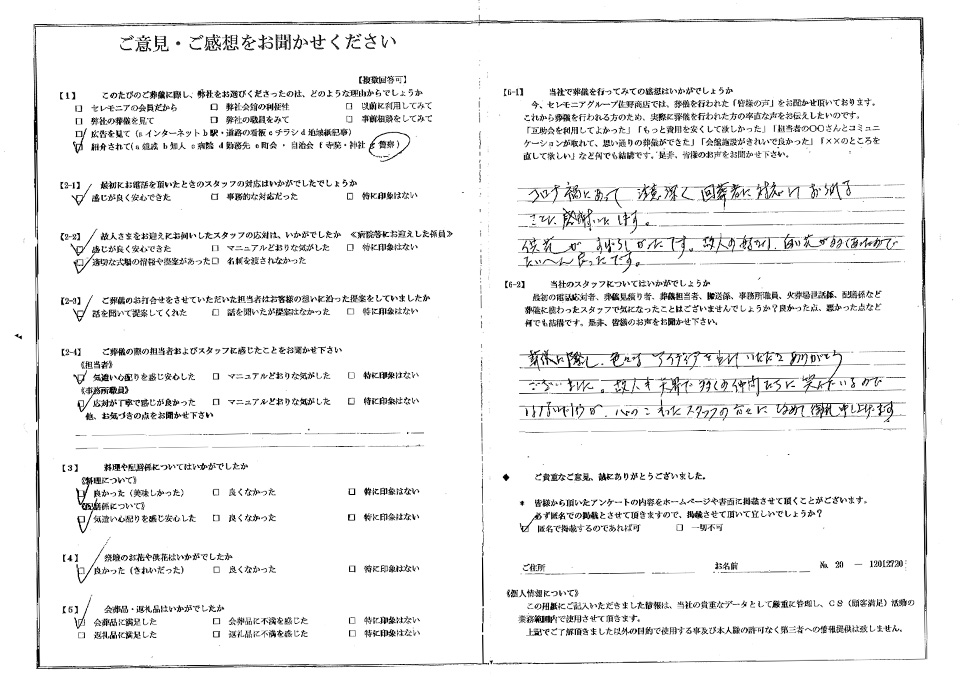 ご意見・ご感想をお聞かせください
【複数回答可】
【1】 このたびのご葬儀に際し、弊社をお選びくださったのは、どのような理由からでしょうか
□ セレモニアの会員だから □ 弊社会館の利便性 □ 以前に利用してみて
□ 弊社の葬儀を見て □ 弊社の職員をみて □ 事前相談をしてみて
□ 広告を見て（a インターネット b 駅・道路の看板 c チラシ d 地域紙記事）
□ 紹介されて（a 親戚 b 知人 c 病院 d 勤務先 e 町会・自治会 f 寺院・神社 g 警察）
【2-1】 最初にお電話を頂いたときのスタッフの対応はいかがでしたでしょうか
□ 感じが良く安心できた □ 事務的な対応だった □ 特に印象はない
【2-2】 故人さまをお迎えにお伺いしたスタッフの応対は、いかがでしたか 《病院等にお迎えした係員》
□ 感じが良く安心できた □ マニュアルどおりな気がした □ 特に印象はない
□ 適切な式場の情報や提案があった □ 名刺を渡されなかった
【2-3】 ご葬儀のお打合せをさせていただいた担当者はお客様の想いに沿った提案をしていましたか
□ 話を聞いて提案してくれた □ 話を聞いたが提案はなかった □ 特に印象はない
【2-4】 ご葬儀の際の担当者およびスタッフに感じたことをお聞かせ下さい
《担当者》
□ 気遣い心配りを感じ安心した □ マニュアルどおりな気がした □ 特に印象はない
《事務所職員》
□ 応対が丁寧で感じが良かった □ マニュアルどおりな気がした □ 特に印象はない
他、お気づきの点をお聞かせ下さい
【3】 料理や配膳係についてはいかがでしたか
《料理について》
□ 良かった（美味しかった） □ 良くなかった □ 特に印象はない
《配膳係について》
□ 気遣い心配りを感じ安心した □ 良くなかった □ 特に印象はない
【4】 祭壇のお花や供花はいかがでしたか
□ 良かった（きれいだった） □ 良くなかった □ 特に印象はない
【5】 会葬品・返礼品はいかがでしたか
□ 会葬品に満足した □ 会葬品に不満を感じた □ 特に印象はない
□ 返礼品に満足した □ 返礼品に不満を感じた □ 特に印象はない
【6-1】 当社で葬儀を行ってみての感想はいかがでしょうか
今、セレモニアグループ佐野商店では、葬儀を行われた「皆様の声」をお聞かせ頂いております。
これから葬儀を行われる方のため、実際に葬儀を行われた方の率直な声をお伝えしたいのです。
「互助会を利用してよかった」「もっと費用を安くして欲しかった」「担当者の〇〇さんとコミュニ
ケーションが取れて、思い通りの葬儀ができた」「会館施設がきれいで良かった」「××のところを
直して欲しい」など何でも結構です。是非、皆様のお声をお聞かせ下さい。
コロナ禍にあって 注意深く 回葬者に対応しておられる
ことに 感謝いたします。
供花が すばらしかったです。故人の好みの、白い花が多くあったので
たいへん良かったです。
【6-2】 当社のスタッフについてはいかがでしょうか
最初の電話応対者、葬儀見積り者、葬儀担当者、搬送係、事務所職員、火葬場世話係、配膳係など
葬儀に携わったスタッフで気になったことはございませんでしょうか？良かった点、悪かった点など
何でも結構です。是非、皆様のお声をお聞かせ下さい。
葬儀に際し、色々な アイディアを いただき ありがとう
ございました。故人も天界で 多くの仲間たちに
心のこもったスタッフの 御礼申し上げます
◆ ご貴重なご意見、誠にありがとうございました。
＊ 皆様から頂いたアンケートの内容をホームページや書面に掲載させて頂くことがございます。
必ず匿名での掲載とさせて頂きますので、掲載させて頂いて宜しいでしょうか？
□ 匿名で掲載するのであれば可 □ 一切不可
ご住所 お名前 № 20 － 12012720
《個人情報について》
この用紙にご記入いただきました情報は、当社の貴重なデータとして厳重に管理し、CS（顧客満足）活動の
業務範囲内で使用させて頂きます。
上記でご了解頂きました以外の目的で使用する事及び本人様の許可なく第三者への情報提供は致しません。